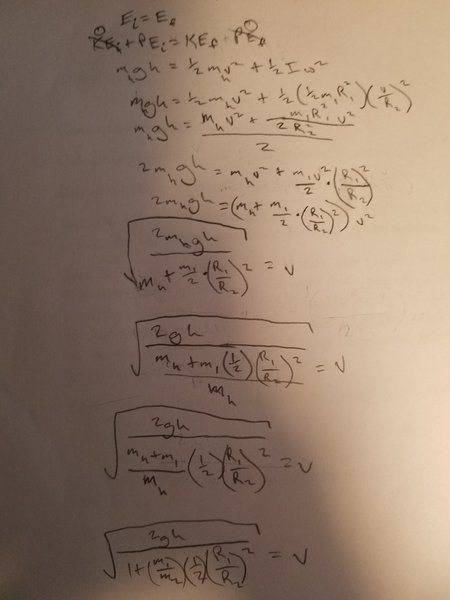 E_i = E_f
KE_i⁰ + PE_i = KE_f + PE_f⁰
m_h gh = ½ m_h v² + ½ I ω²
m_h gh = ½ m_h v² + ½ (½ m_1 R_1²) (v/R_2)²
m_h gh = (m_h v² + (m_1 R_1² v²)/(2 R_2²))/2
2 m_h gh = m_h v² + (m_1 v²)/2 · (R_1/R_2)²
2 m_h gh = (m_h + m_1/2 · (R_1/R_2)²) v²
√((2 m_h gh)/(m_h + m_1/2 · (R_1/R_2)²)) = v
√((2gh)/((m_h + m_1 (½) (R_1/R_2)²)/m_h)) = v
√((2gh)/((m_h + m_1)/m_h (½) (R_1/R_2)²)) = v
√((2gh)/(1 + (m_1/m_2) (½) (R_1/R_2)²)) = v